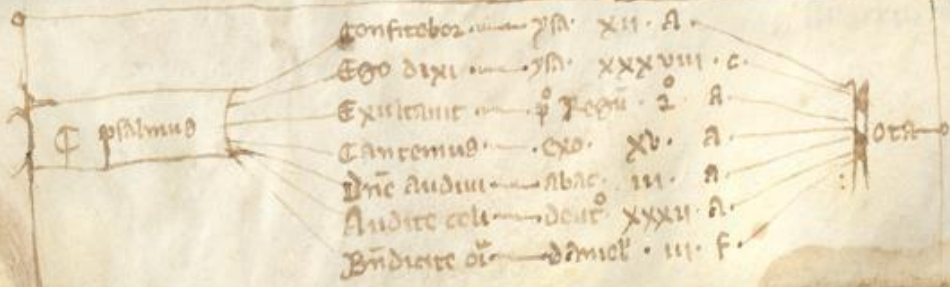 Confitebor ysa xii · A ·
Ego dixi · ysa · xxxviii · c ·
Exultauit · p̊ Regū · 2̊ · A ·
¶ psalmus
Cantemus · exo · xv · A ·
Nota
Dn̄e audiui abac · iii · A ·
Audite celi deut̊ xxxii · A ·
Bn̄dicite oīa daniel · iii · f ·